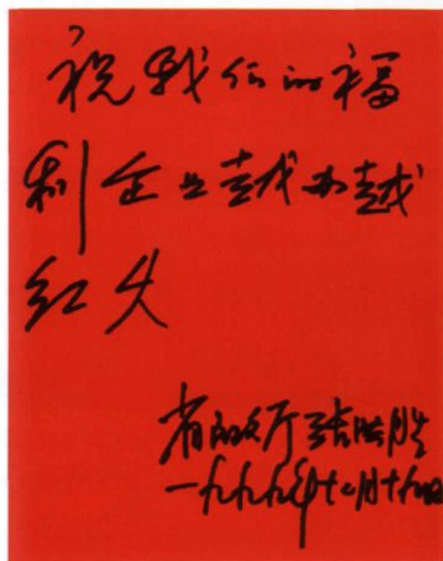 祝我们的福
利企业越办越
红火
省民政厅 张洪胜
一九九九年十二月十九日